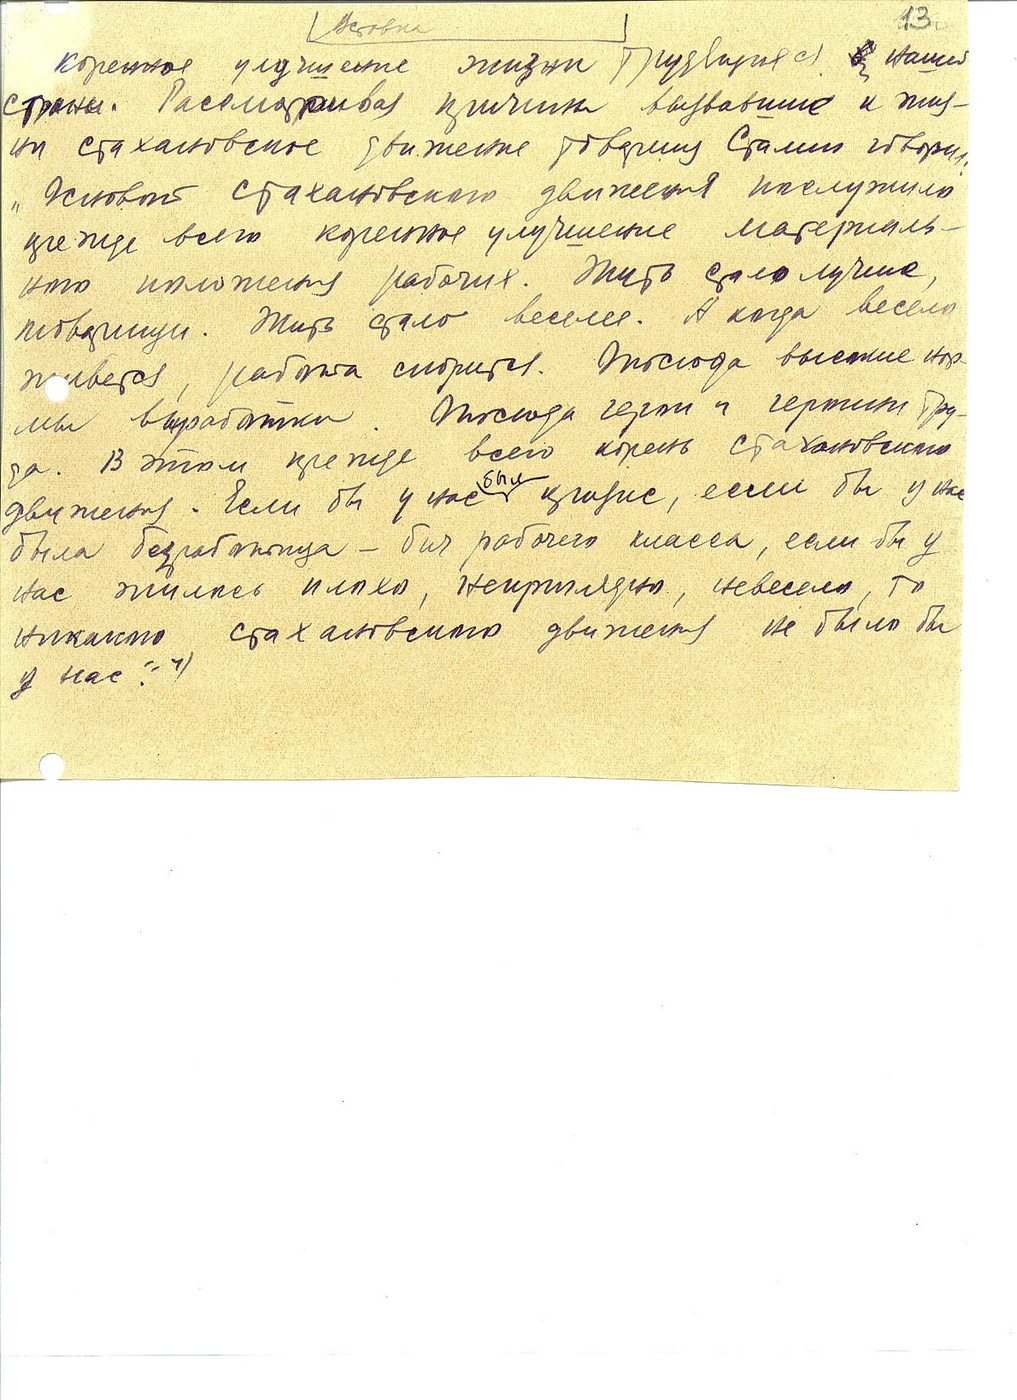 Вставка
13
коренное улучшение жизни трудящихся нашей
страны. Рассматривая причины вызвавшие к жиз-
ни стахановское движение товарищ Сталин говорил:
„Основой стахановского движения послужило
прежде всего коренное улучшение материаль-
ного положения рабочих. Жить стало лучше,
товарищи. Жить стало веселее. А когда весело
живется, работа спорится. Отсюда высокие нор-
мы выработки. Отсюда герои и героини тру-
да. В этом прежде всего корень стахановского
движения. Если бы у нас был кризис, если бы у нас
была безработица – бич рабочего класса, если бы у
нас жилось плохо, неприглядно, невесело, то
никакого стахановского движения не было бы
у нас." 1)